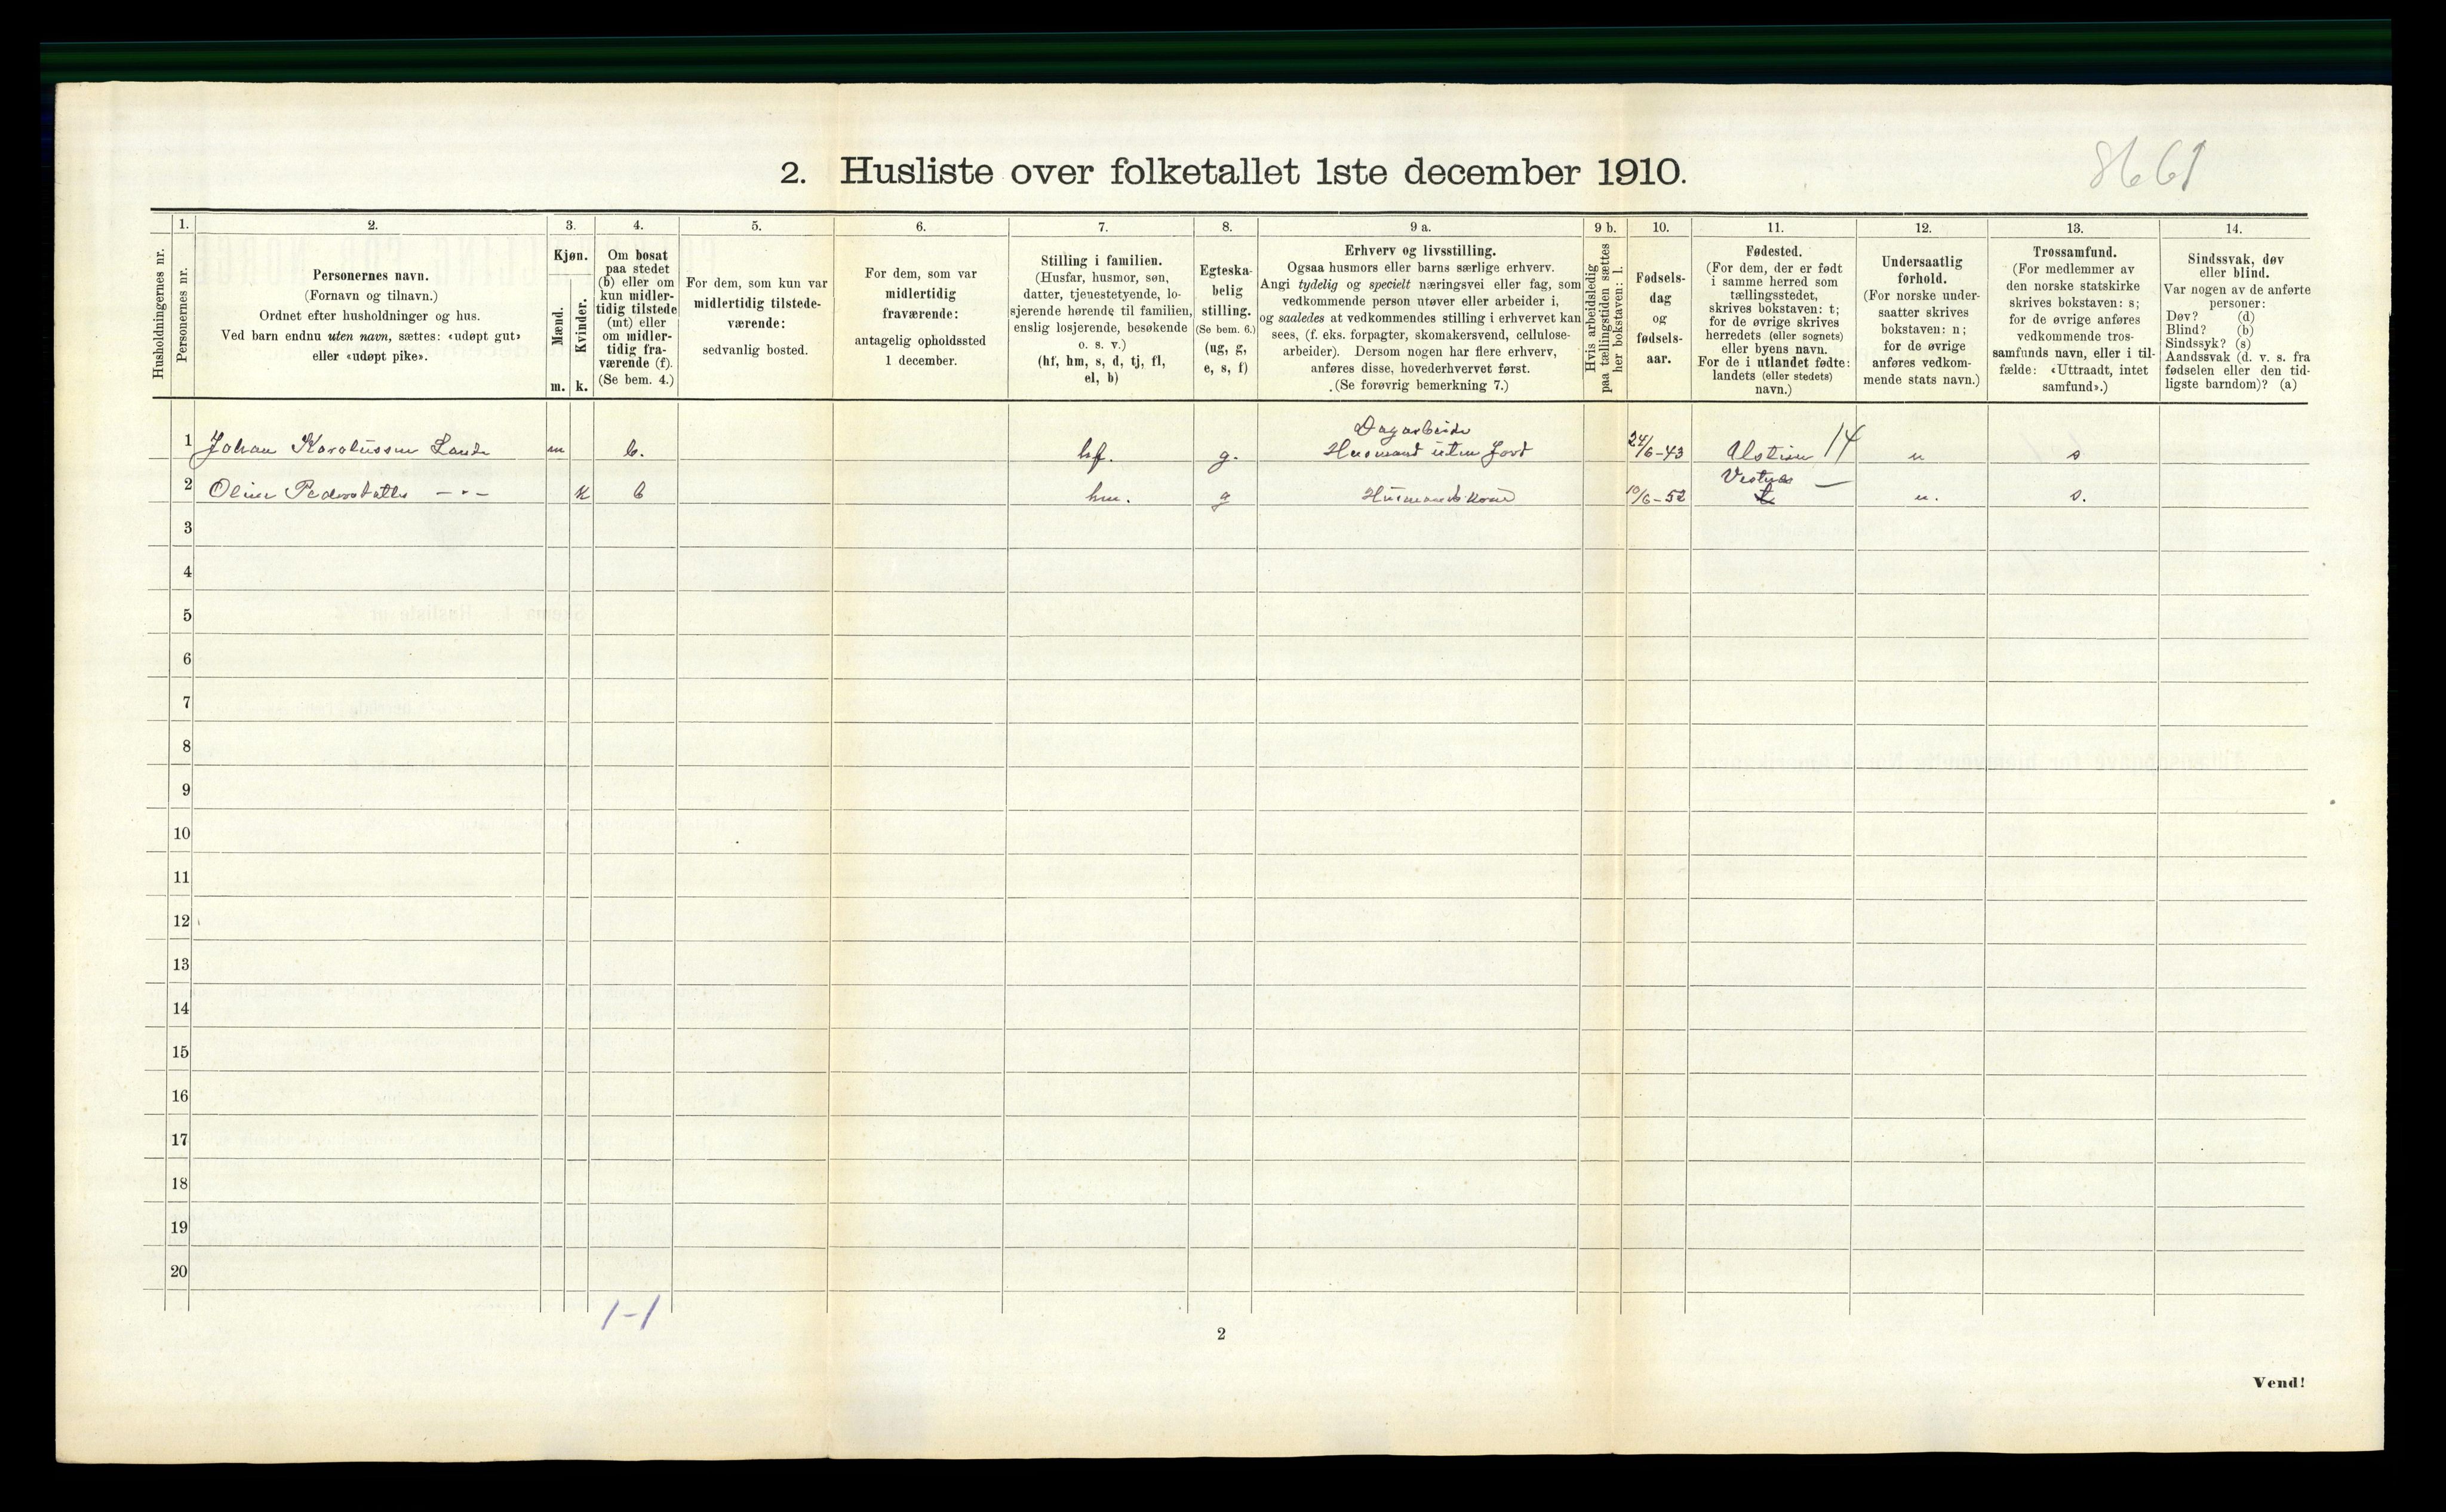 8661
2. Husliste over folketallet 1ste december 1910.
Husholdningernes nr.
1.
Personernes nr.
2.
Personernes navn.
(Fornavn og tilnavn.)
Ordnet efter husholdninger og hus.
Ved barn endnu uten navn, sættes: «udøpt gut»
eller «udøpt pike».
3.
Kjøn.
Mænd.
m.
Kvinder.
k.
4.
Om bosat
paa stedet
(b) eller om
kun midler-
tidig tilstede
(mt) eller
om midler-
tidig fra-
værende (f).
(Se bem. 4.)
5.
For dem, som kun var
midlertidig tilstede-
værende:
sedvanlig bosted.
6.
For dem, som var
midlertidig
fraværende:
antagelig opholdssted
1 december.
7.
Stilling i familien.
(Husfar, husmor, søn,
datter, tjenestetyende, lo-
sjerende hørende til familien,
enslig losjerende, besøkende
o. s. v.)
(hf, hm, s, d, tj, fl,
el, b)
8.
Egteska-
belig
stilling.
(Se bem. 6.)
(ug, g,
e, s, f)
9 a.
Erhverv og livsstilling.
Ogsaa husmors eller barns særlige erhverv.
Angi tydelig og specielt næringsvei eller fag, som
vedkommende person utøver eller arbeider i,
og saaledes at vedkommendes stilling i erhvervet kan
sees, (f. eks. forpagter, skomakersvend, cellulose-
arbeider). Dersom nogen har flere erhverv,
anføres disse, hovederhvervet først.
(Se forøvrig bemerkning 7.)
9 b.
Hvis arbeidsledig
paa tællingstiden sættes
her bokstaven: l.
10.
Fødsels-
dag
og
fødsels-
aar.
11.
Fødested.
(For dem, der er født
i samme herred som
tællingsstedet,
skrives bokstaven: t;
for de øvrige skrives
herredets (eller sognets)
eller byens navn.
For de i utlandet fødte:
landets (eller stedets)
navn.)
12.
Undersaatlig
forhold.
(For norske under-
saatter skrives
bokstaven: n;
for de øvrige
anføres vedkom-
mende stats navn.)
13.
Trossamfund.
(For medlemmer av
den norske statskirke
skrives bokstaven: s;
for de øvrige anføres
vedkommende tros-
samfunds navn, eller i til-
fælde: «Uttraadt, intet
samfund».)
14.
Sindssvak, døv
eller blind.
Var nogen av de anførte
personer:
Døv? (d)
Blind? (b)
Sindssyk? (s)
Aandssvak (d. v. s. fra
fødselen eller den tid-
ligste barndom)? (a)
Dagarbeide
1 Johan Karolussen Lande m b. hf. g. Husmand uten Jord 24/6-43 14 n s
Vestnes —
2 Pedersdatter -"- k b hm. g Husmandskone 10/6-52 t n. s.
3
4
5
6
7
8
9
10
11
12
13
14
15
16
17
18
19
20
1-1
2
Vend!